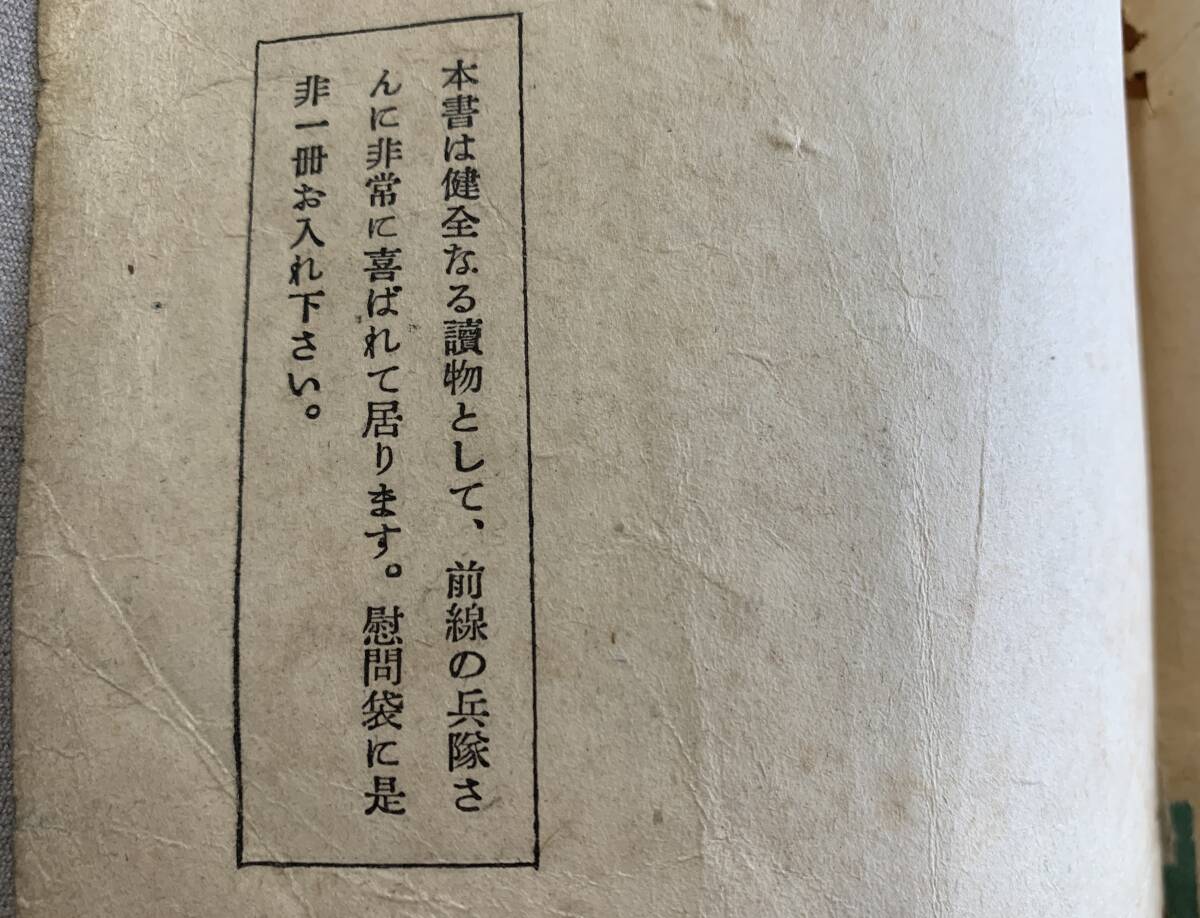 本書は健全なる讀物として、前線の兵隊さ
んに非常に喜ばれて居ります。慰問袋に是
非一冊お入れ下さい。